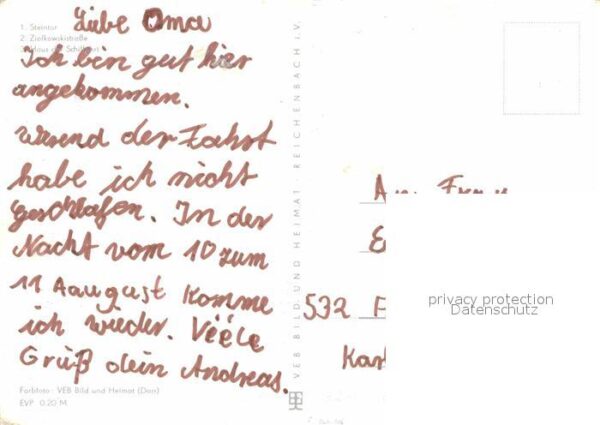 Liebe Oma
1. Steintor
2. Ziolkowskistraße
Ich bin gut hier
angekommen.
wärend der Fahrt
habe ich nicht
geschlafen. In der
Nacht vom 10 zum
11 Aaugust komme
ich wieder. Viele
Grüß dein Andreas.
Farbfoto: VEB Bild und Heimat (Dan)
EVP 0.20 M
VEB BILD UND HEIMAT · REICHENBACH i. V.
An Frau
E
532
Kar
privacy protection
Datenschutz